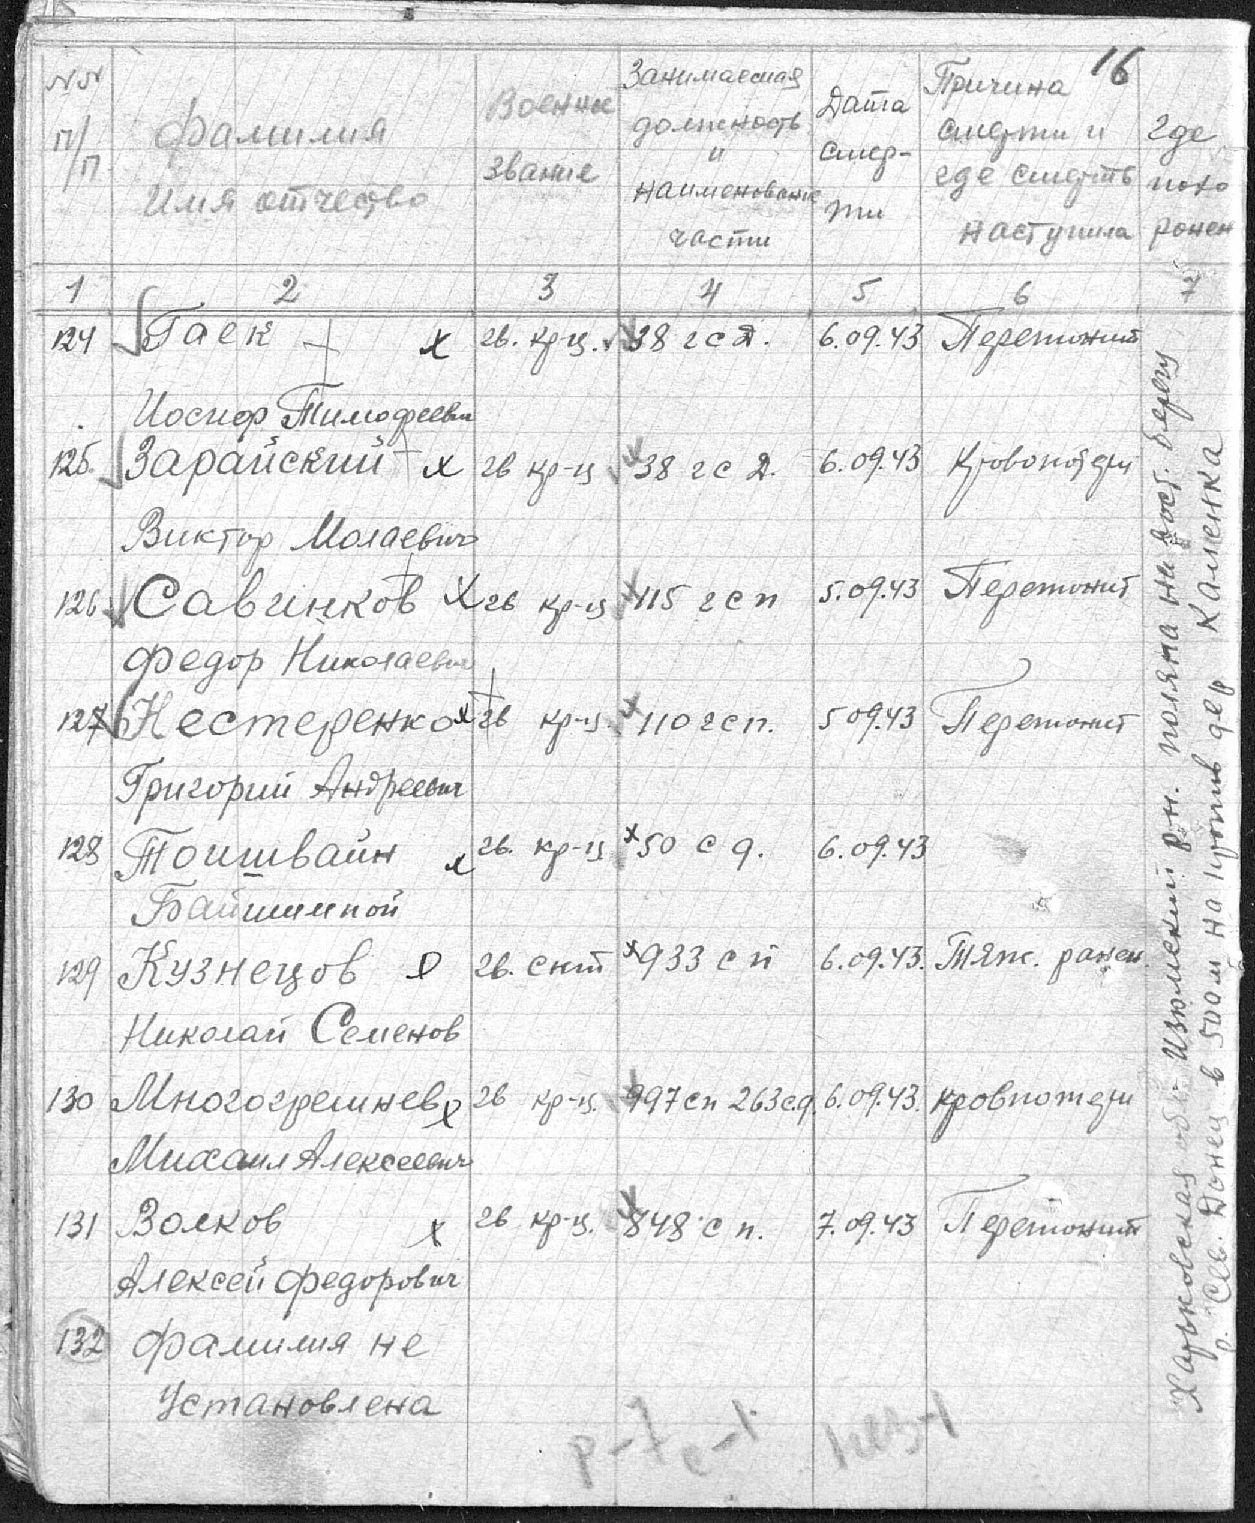 16
№№ п/п
фамилия Имя отчество
Военное звание
Занимаемая должность и наименование части
Дата смерти
Причина смерти и где смерть наступила
где похоронен
1 2 3 4 5 6 7
124 Гаек х гв. кр-ц. 38 гсд. 6.09.43 Перетонит
Иосиф Тимофеевич
125. Зарайский х гв кр-ц 38 гсд. 6.09.43 Кровопотери
Виктор Молаевич
126 Савинков х гв кр-ц 115 гсп 5.09.43 Перетонит
Федор Николаевич
127 Нестеренко х гв кр-ц 110 гсп. 5 09.43 Перетонит
Григорий Андреевич
128 Тоишвайн х гв. кр-ц х 50 сд. 6.09.43
Байшимпой
129 Кузнецов гв. снт х 933 сп 6.09.43. Тяж. ранен.
Николай Семенов
130 Многогрешнев гв кр-ц. 997сп 263с.д. 6.09.43. кровпотери
Михаил Алексеевич
131 Волков х гв. кр-ц. 848 сп. 7.09.43 Перетонит
Алексей Федорович
132 фамилия не
установлена
Харьковская обл. Изюмский р.н. поляна на вост. берегу
р. Сев. Донец в 500м на против дер Каменка
р-7 с-1